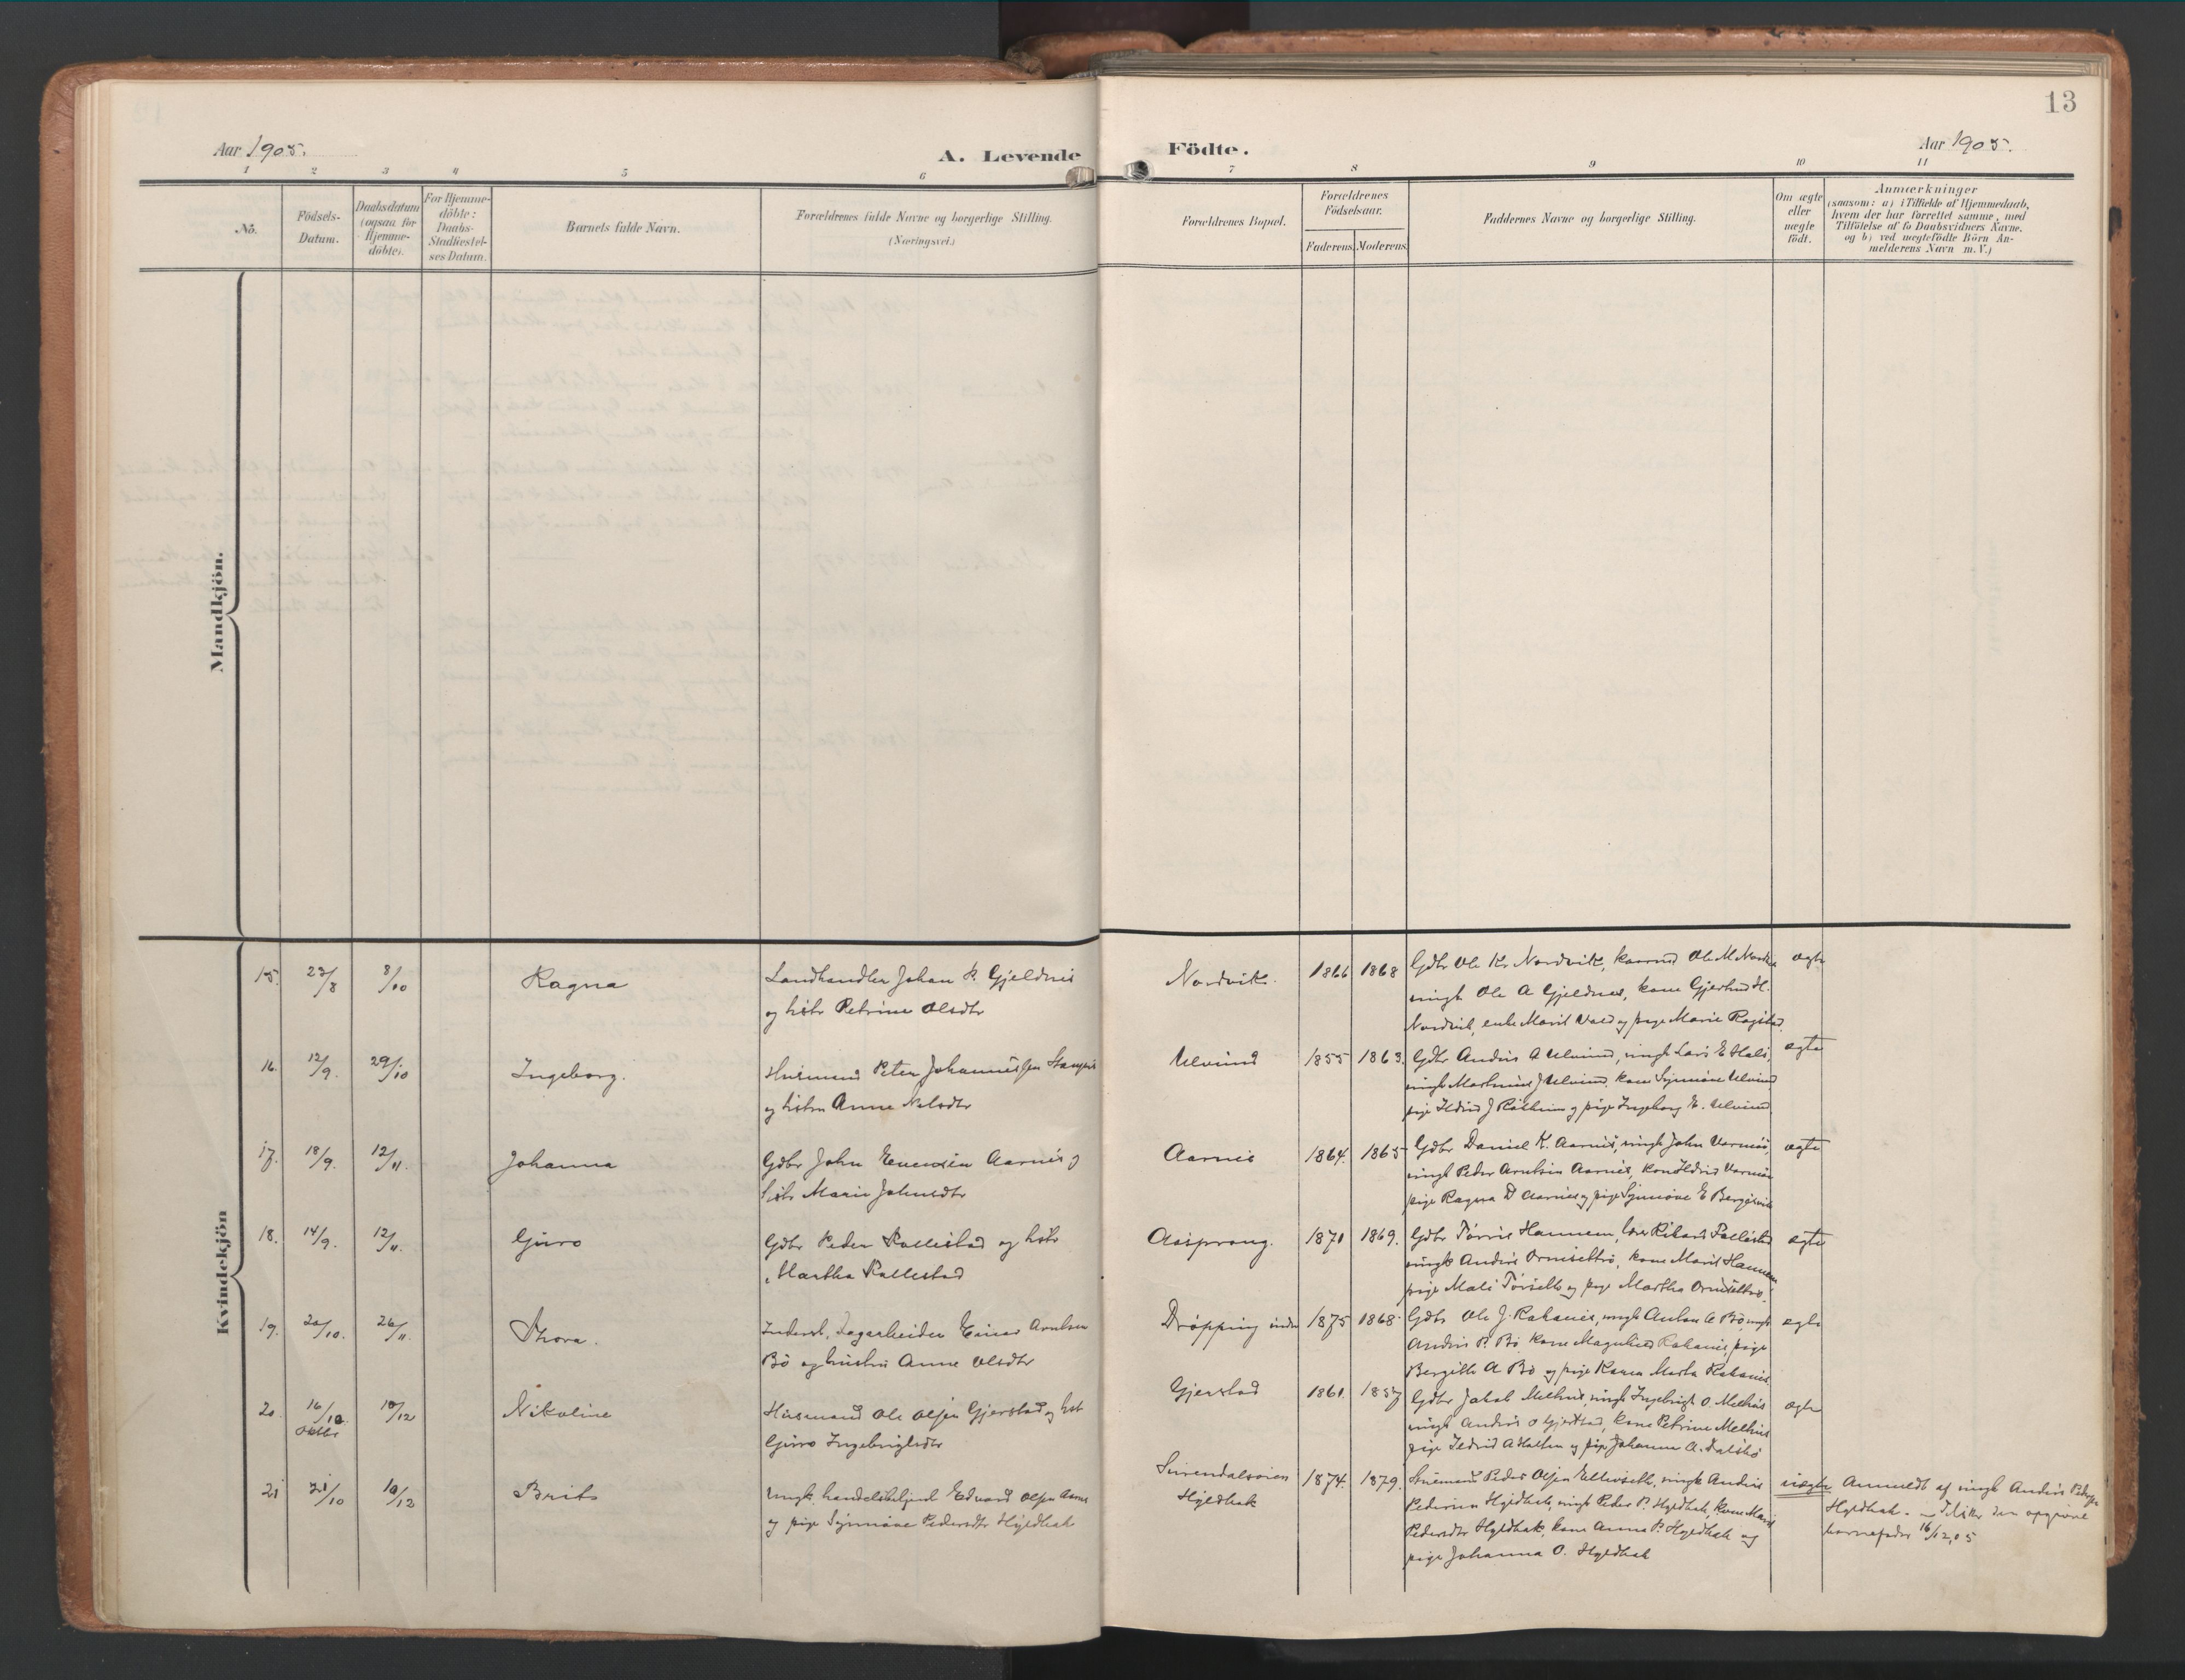 13
Aar 1905.
A. Levende Födte.
Aar 1905.
1 2 3 4 5 6 7 8 9 10 11
No.
Födsels-
Datum.
Daabsdatum
(ogsaa for
Hjemme-
döbte).
For Hjemme-
döbte:
Daabs-
Stadfæstel-
ses Datum.
Barnets fulde Navn.
Forældrenes fulde Navne og borgerlige Stilling.
(Næringsvei.)
Forældrenes Bopæl.
Forældrenes
Födselsaar.
Faderens Moderens
Faddernes Navne og borgerlige Stilling.
Om ægte
eller
uægte
födt.
Anmærkninger
(saasom: a) i Tilfælde af Hjemmedaab,
hvem der har forrettet samme, med
Tilföielse af to Daabsvidners Navne.
og b) ved uægtefödte Börn An-
melderens Navn m. V.)
Mandkjön.
Kvindekjön
15. 23/8 8/10 Ragna
Landhandler Johan P. Gjeldnes
og hstr Petrine Olsdtr
Nordvik. 1866 1868
Gdbr Ole Kr Nordvik, kaarmd Ole M Nordvik
ungk Ole A Gjeldnes, kone Gjertrud H.
Nordvik, enke Marit Vaed og pige Marie Rogstad
ægte
16. 12/9. 29/10 Ingeborg.
Husmand Peter Johannessen Stangvik
og hstru Anne Nilsdtr
Ulvund 1855 1863.
Gdbr Anders A Ulvund, ungk Lars E Hals,
ungk Martinus J Ulvund, kone Synnøve Ulvund
pige Ildrid J Rølheim og pige Ingeborg E. Ulvund
ægte
17. 18/9. 12/11. Johanna
Gdbr John Evensen Aarnes og
hstr Marie Johnsdtr
Aarnes 1864. 1865
Gdbr Daniel K. Aarnes, ungk John Vermøi,
ungk Peder Arntsen Aarnes, kone Ildrid Vermøi
pige Ragna D Aarnes og pige Synnøve E Bergsvik
ægte
18. 14/9. 12/11. Guro
Gdbr Peder Pollestad og hstr
Martha Pollestad
Aasprang. 1871 1869.
Gdbr Tørris Hannem, Rikard Pollestad
ungk Anders Ormsettrø, kone Marit Hannem
pige Mali Torsetb og pige Martha Ormsettrø.
ægte
19. 20/10. 26/11. Thora.
Inderst, Dagarbeider Einar Arntsen
Bø og hustru Anne Olsdtr
Drøpping indr 1875 1868
Gdbr Ole J. Rakanes, ungk Anton A Bø, ungk
Anders P. Bø, kone Magnhild Rakanes, pige
Bergitte A Bø og pige Karen Marta Rakanes.
ægte
20. 16/10 Oktbr 10/12 Nikoline
Husmand Ole Olsen Gjerstad og hst
Guro Ingebrigtsdtr
Gjerstad 1861. 1857
Gdbr Jakob Melhus, ungk Ingebrigt O. Melhus
ungk Anders O Gjerstad, kone Petrine Melhus
pige Ildrid A Holten og pige Johanne A. Dalsbø
ægte
21 21/10 10/12 Brit
Ungk. handelsbetjent Edvard Olsen Aarnes
og pige Synnøve Pedersdtr Hyldbak
Surendalsøren
Hyldbak 1874. 1879.
Husmand Peder Olsen Ellevseth, ungk Anders
Pedersen Hyldbak, ungk Peder P. Hyldbak, kone Marit
Pedersdtr Hyldbak, kone Anna P. Hyldbak og
pige Johanna O. Hyldbak
uægte
Anmeldt af ungk Anders Peders
Hyldbak. – den opgivne
barnefader 16/12,05